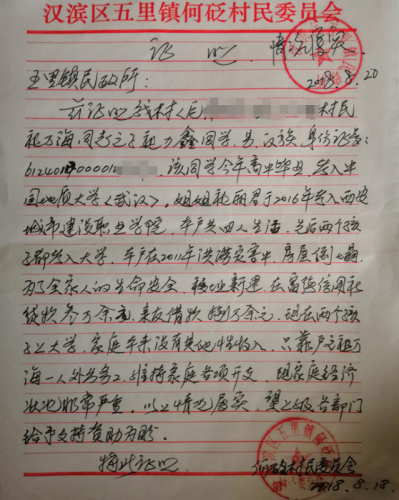 汉滨区五里镇何砭村民委员会
证 明 情况属实
2018.8.20
五里镇民政所：
兹证明我村人民 村民
海同志之子 力鑫同学，男，汉族，身份证号：
612401 000010 ，该同学今年高中毕业，考入中
国地质大学（武汉）。姐姐 丽君于2016年考入西安
城市建设职业学院，年产 四人生活，总后两个孩
子都考入大学，年产在2011年洪涝灾害中，房屋倒塌，
为了全家人的生命安全，移址新建，在富强信用社
贷款叁万余元，亲友借款 万余元。现在两个孩
子上大学，家庭年来没有其他性收入，只靠户主
海一人外出务工，维持家庭各项开支，现家庭经济
状况非常严重，以上情况属实，望上级各部门
给予支持资助为盼。
特此证明
何砭村民委员会
2018.8.18